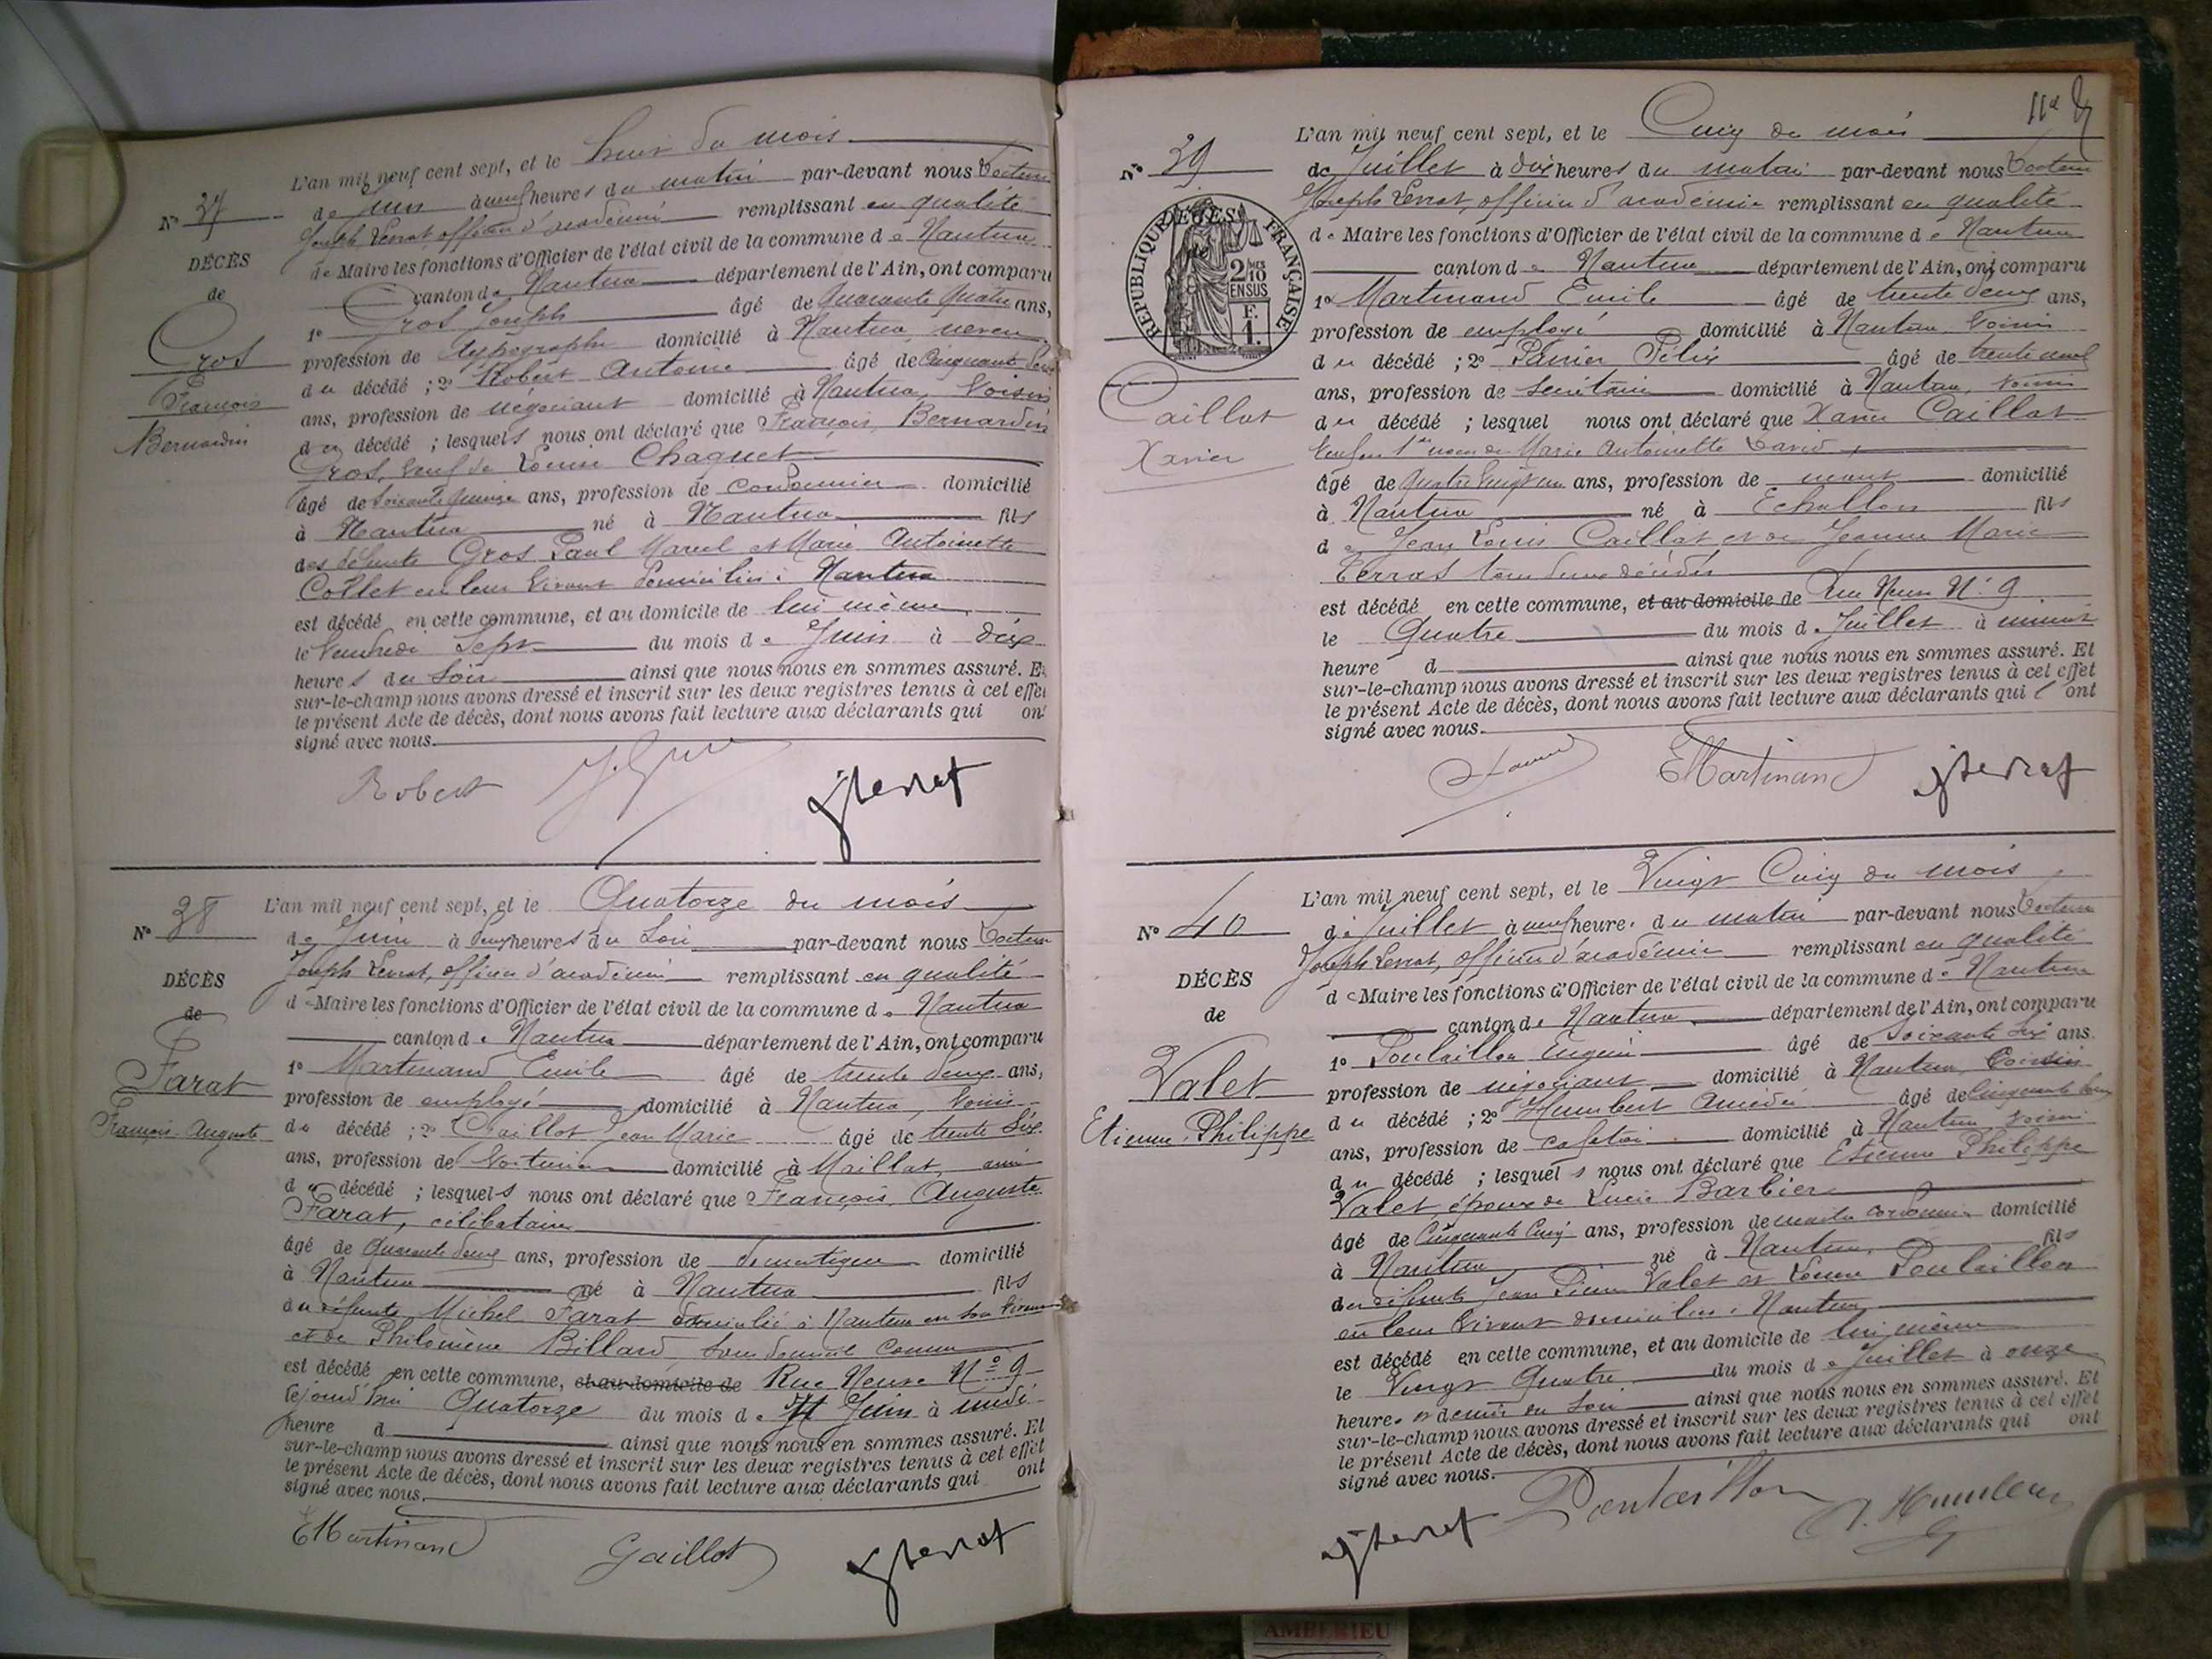 L'an mil neuf cent sept, et le huit du mois
de juin à neuf heures du matin par-devant nous Docteur
Joseph Terrat, officier d'académie remplissant en qualité
de Maire les fonctions d'Officier de l'état civil de la commune de Nantua
canton de Nantua département de l'Ain, ont comparu
1º Gros Joseph âgé de quarante quatre ans,
profession de typographe domicilié à Nantua, neveu
du décédé ; 2º Robert Antoine âgé de cinquante
ans, profession de négociant domicilié à Nantua, voisin
du décédé ; lesquels nous ont déclaré que François Bernardin
Gros, veuf de Louise Chaquet
âgé de soixante quinze ans, profession de cordonnier domicilié
à Nantua né à Nantua fils
des défunts Gros Paul Marcel et Marie Antoinette
Collet en leur vivant domiciliés à Nantua
est décédé en cette commune, et au domicile de lui même
le Vendredi Sept du mois de Juin à dix
heures du soir ainsi que nous nous en sommes assuré. Et
sur-le-champ nous avons dressé et inscrit sur les deux registres tenus à cet effet
le présent Acte de décès, dont nous avons fait lecture aux déclarants qui ont
signé avec nous.
Nº 37
DÉCÈS
de
Gros
François
Bernardin
Robert J. Gros J Terrat
L'an mil neuf cent sept, et le Quatorze du mois
de Juin à deux heures du soir par-devant nous Docteur
Joseph Terrat, officier d'académie remplissant en qualité
de Maire les fonctions d'Officier de l'état civil de la commune de Nantua
canton de Nantua département de l'Ain, ont comparu
1º Martinand Emile âgé de trente deux ans,
profession de employé domicilié à Nantua, voisin
du décédé ; 2º Gaillot Jean Marie âgé de trente six
ans, profession de voiturier domicilié à Maillat, ami
du décédé ; lesquels nous ont déclaré que François Auguste
Farat, célibataire
âgé de quarante deux ans, profession de domestique domicilié
à Nantua né à Nantua fils
du défunt Michel Farat domicilié à Nantua en son vivant
et de Philomène Billard, sans domicile connu
est décédé en cette commune, et au domicile de Rue Neuve Nº 9
cejourd'hui Quatorze du mois de Juin à midi
heure d ainsi que nous nous en sommes assuré. Et
sur-le-champ nous avons dressé et inscrit sur les deux registres tenus à cet effet
le présent Acte de décès, dont nous avons fait lecture aux déclarants qui ont
signé avec nous.
Nº 38
DÉCÈS
de
Farat
François Auguste
E Martinand Gaillot J Terrat
L'an mil neuf cent sept, et le Cinq du mois
de Juillet à dix heures du matin par-devant nous Docteur
Joseph Terrat, officier d'académie remplissant en qualité
de Maire les fonctions d'Officier de l'état civil de la commune de Nantua
canton de Nantua département de l'Ain, ont comparu
1º Martinand Emile âgé de trente deux ans,
profession de employé domicilié à Nantua voisin
du décédé ; 2º Félix âgé de trente neuf
ans, profession de secrétaire domicilié à Nantua, voisin
du décédé ; lesquel nous ont déclaré que Xavier Caillat
veuf en 1res noces de Marie Antoinette David
âgé de quatre vingt un ans, profession de domicilié
à Nantua né à Echallon fils
de Jean Louis Caillat et de Jeanne Marie
Terras tous deux décédés
est décédé en cette commune, et au domicile de Rue Neuve Nº 9
le Quatre du mois de Juillet à minuit
heure d ainsi que nous nous en sommes assuré. Et
sur-le-champ nous avons dressé et inscrit sur les deux registres tenus à cet effet
le présent Acte de décès, dont nous avons fait lecture aux déclarants qui l'ont
signé avec nous.
Nº 39
DÉCÈS
de
RÉPUBLIQUE FRANÇAISE
2 MES 10
EN SUS
F.
1.
Caillat
Xavier
E Martinand J Terrat
L'an mil neuf cent sept, et le Vingt Cinq du mois
de Juillet à neuf heures du matin par-devant nous Docteur
Joseph Terrat, officier d'académie remplissant en qualité
de Maire les fonctions d'Officier de l'état civil de la commune de Nantua
canton de Nantua département de l'Ain, ont comparu
1º Poulaillon Eugène âgé de soixante six ans
profession de négociant domicilié à Nantua, Cousin
du décédé ; 2º Humbert Amédée âgé de cinquante
ans, profession de cafetier domicilié à Nantua, voisin
du décédé ; lesquels nous ont déclaré que Etienne Philippe
Valet, époux de Lucie Barbier
âgé de Cinquante Cinq ans, profession de maître cordonnier domicilié
à Nantua né à Nantua, fils
des défunts Jean Pierre Valet et Louise Poulaillon
en leur vivant domiciliés à Nantua
est décédé en cette commune, et au domicile de lui même
le Vingt Quatre du mois de Juillet à onze
heures et demie du soir ainsi que nous nous en sommes assuré. Et
sur-le-champ nous avons dressé et inscrit sur les deux registres tenus à cet effet
le présent Acte de décès, dont nous avons fait lecture aux déclarants qui ont
signé avec nous.
Nº 40
DÉCÈS
de
Valet
Etienne Philippe
J Terrat Poulaillon A. Humbert
AMBERIEU